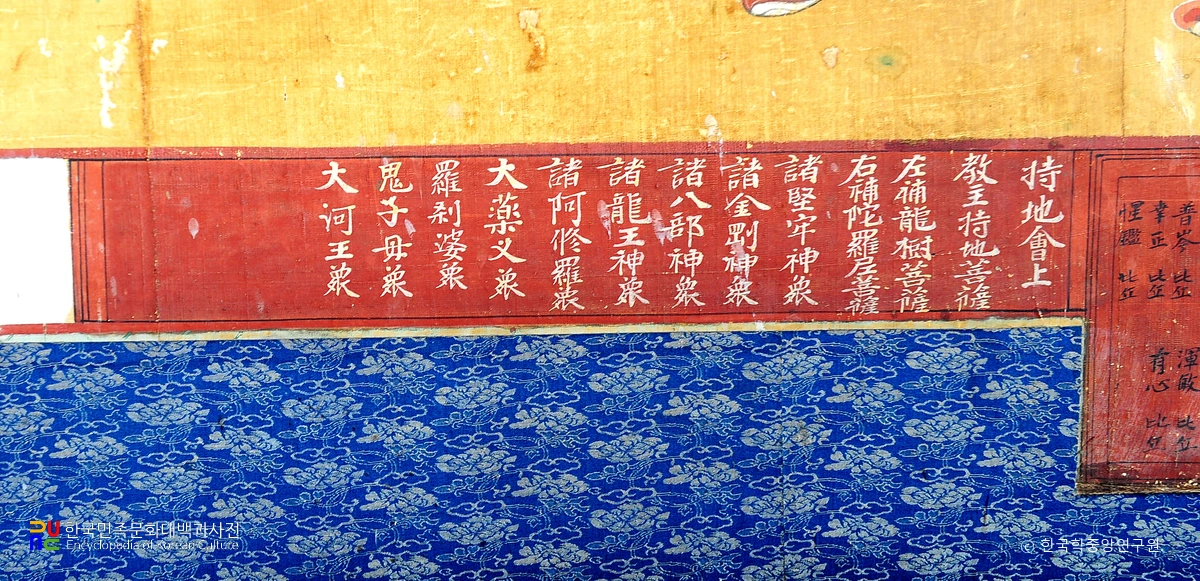 普岑 比丘
比丘
惺鑑 比丘
比丘
心 比丘
持地會上
教主持地菩薩
左補龍樹菩薩
右補陀羅尼菩薩
諸堅牢神衆
諸金剛神衆
諸八部神衆
諸龍王神衆
諸阿修羅衆
大藥叉衆
羅刹婆衆
鬼子母衆
大河王衆
한국민족문화대백과사전
Encyclopedia of Korean Culture
© 한국학중앙연구원